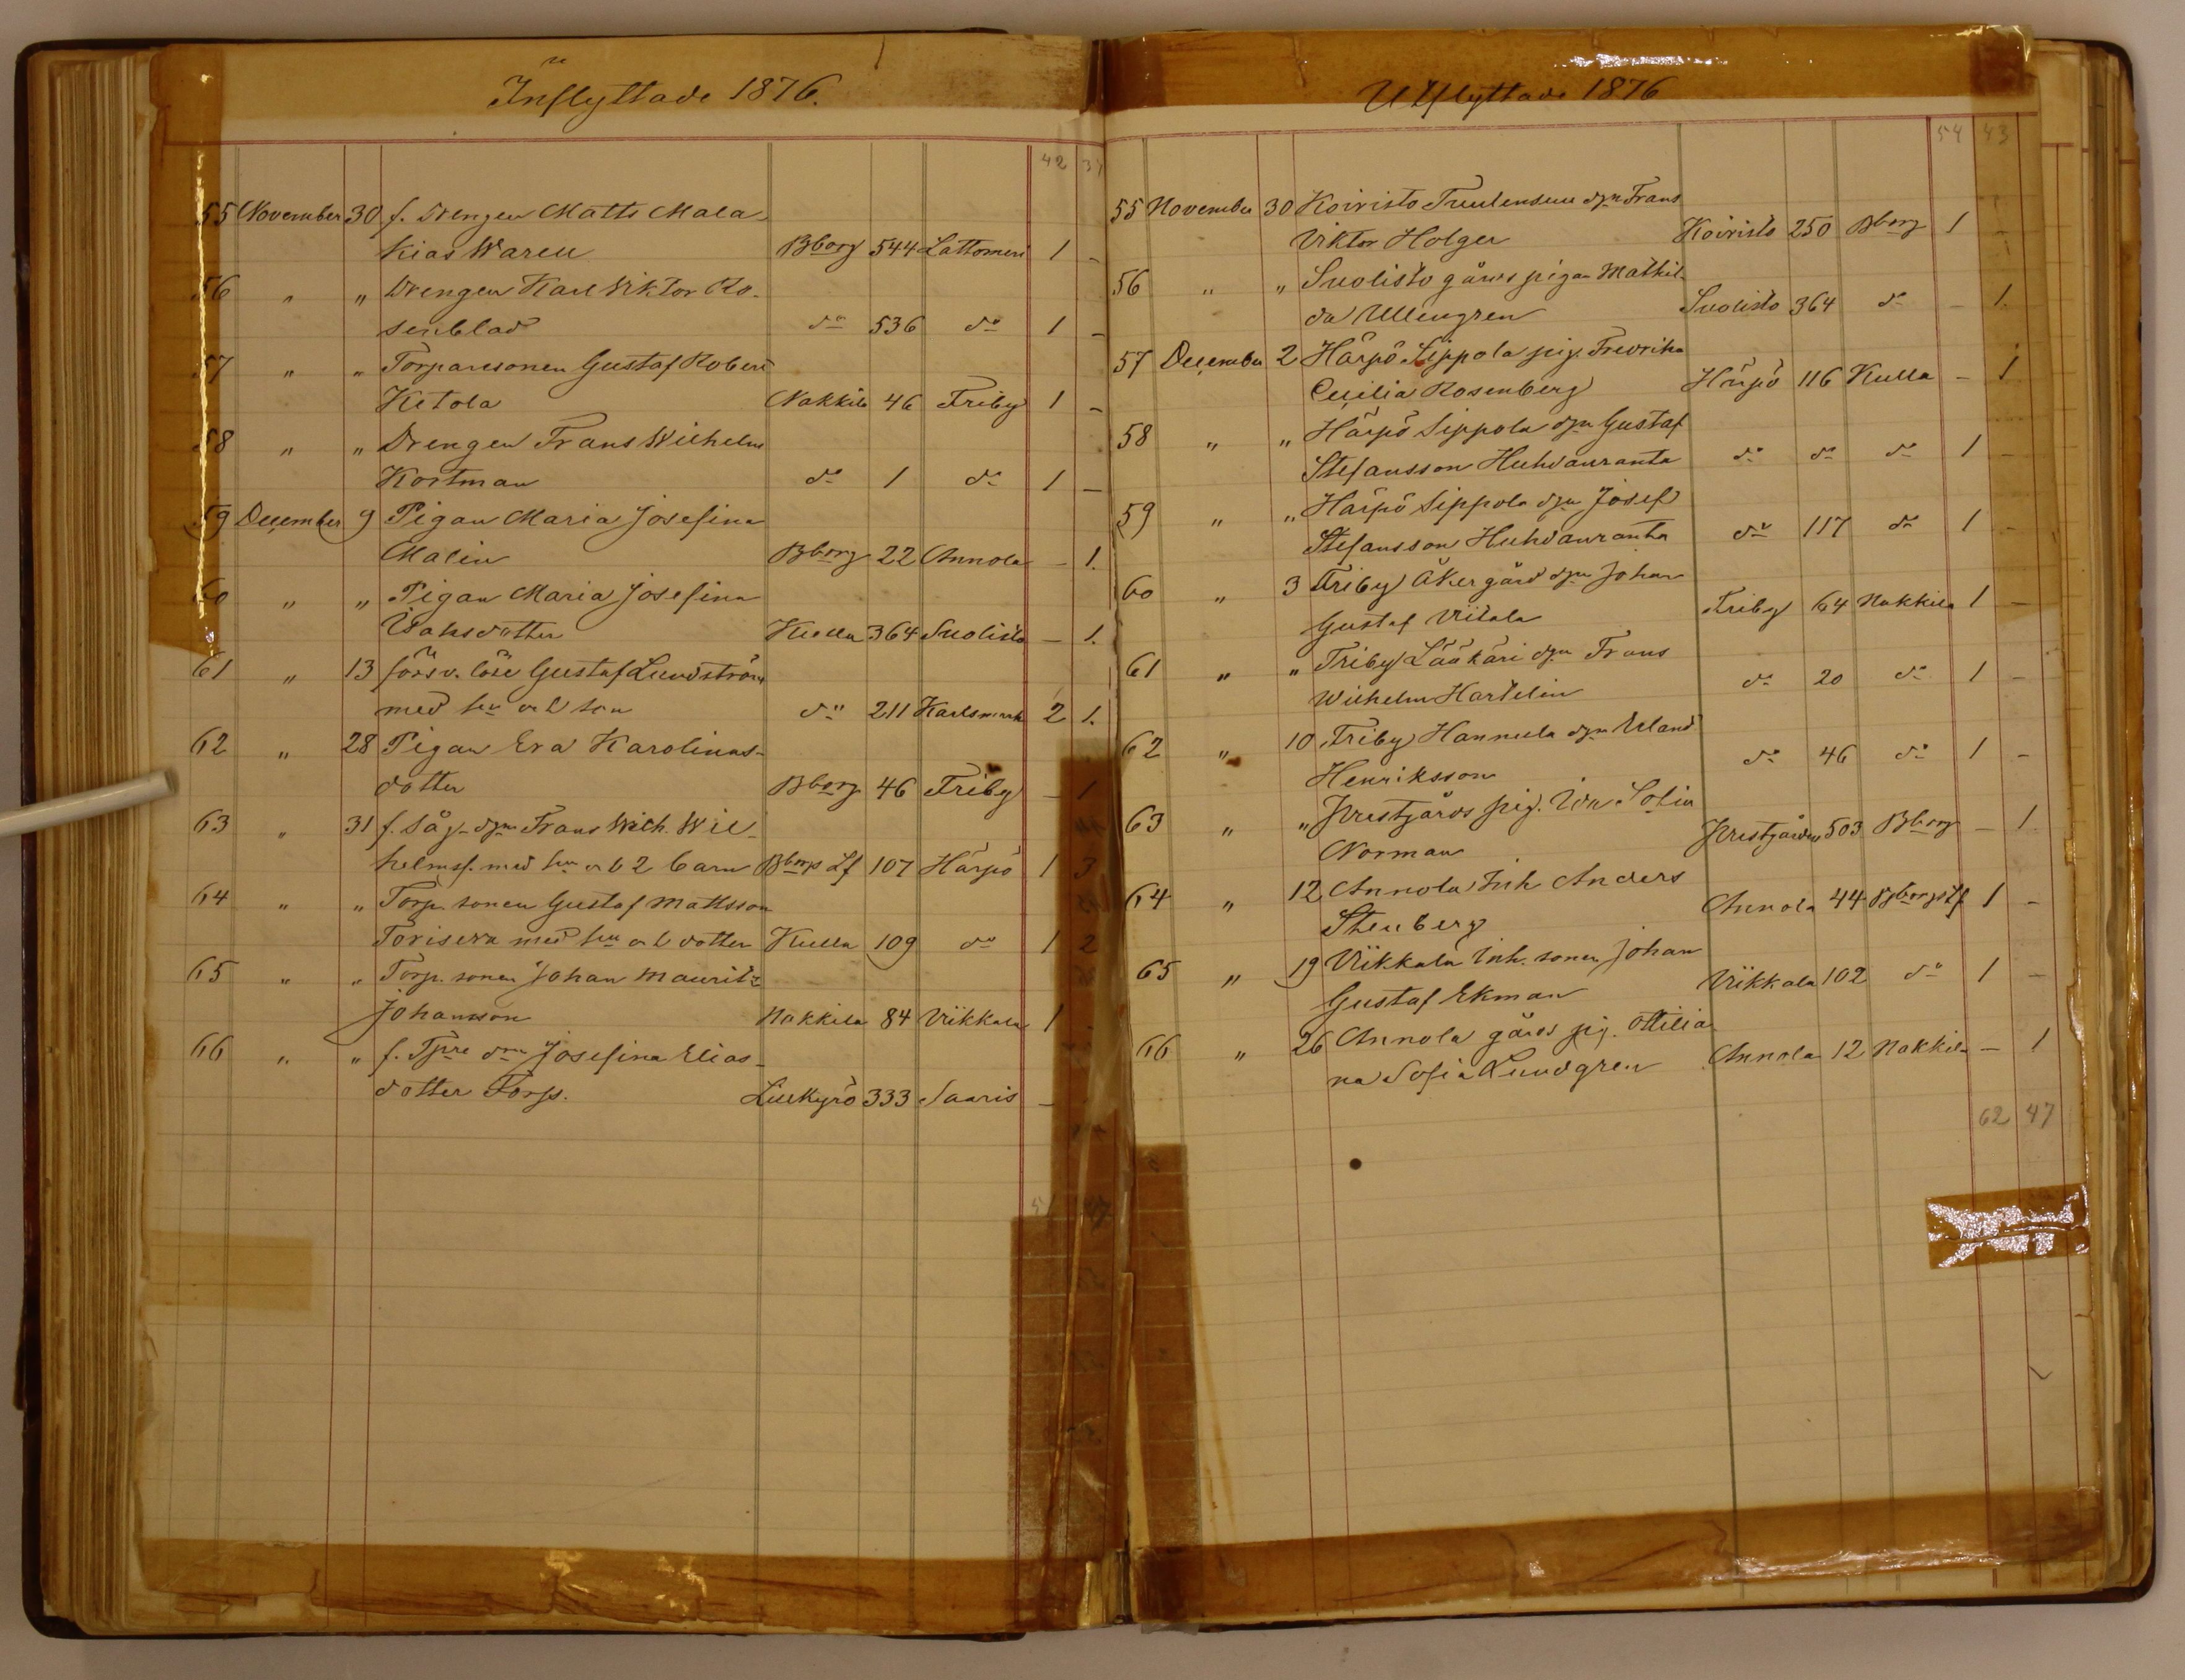 Inflyttade 1876.
42 34
55 November 30 f. Drengen Matts Mala
kias Waren Bborg 544 Lattomeri 1 -
56 " " Drengen Karl Viktor Ro-
senblad do 536 do 1 -
57 " " Torparesonen Gustaf Robert
Ketola Nakkila 46 Friby 1 -
58 " " Drengen Frans Wilhelm
Kortman do 1 do 1 -
59 December 9 Pigan Maria Josefina
Malin Bborg 22 Annola - 1.
60 " " Pigan Maria Josefina
Isaksdotter Kulla 364 Suolisto - 1.
61 " 13 försv. löse Gustaf Lundström
med hu o 1 son do 211 Karlsmark 2 1.
62 " 28 Pigan Eva Karolinas-
dotter Bborg 46 Friby - 1
63 " 31 f. Såg-dgn Frans Wilh. Wil-
helmss. med hu o b 2 barn Bborgs Lf 107 Härpö 1 3
64 " " Torp. sonen Gustaf Mattsson
Torisera med hu o 1 dotter Kulla 109 do 1 2
65 " " Torp. sonen Johan Mauritz
Johansson Nakkila 84 Viikkala 1 -
66 " " f. Tpre Josefina Elias-
dotter Forss. Luikyrö 333 Saaris -
Utflyttade 1876
54 43
55 November 30 Koiristo Tuulensuu dgn Frans
Viktor Holger Koiristo 250 Bborg 1 -
56 " " Suolisto gårds pigan Mathil-
da Ullengren Suolisto 364 do - 1.
57 December 2 Härpö Sippola pig. Fredrika
Cecilia Rosenberg Härpö 116 Kulla - 1
58 " " Härpö Sippola dgn Gustaf
Stefansson Huhdanranta do do do 1 -
59 " " Härpö Sippola dgn Josef
Stefansson Huhdanranta do 117 do 1 -
60 " 3 Friby Åkergård dgn Johan
Gustaf Viitala Friby 64 Nakkila 1 -
61 " " Friby Lääkäri dgn Frans
Wilhelm Hartelin do 20 do 1 -
62 " 10 Friby Hannula dgn Erland
Henriksson do 46 do 1 -
63 " " Prestgårds pig. Ida Sofia
Norman Prestgården 503 Bborg - 1
64 " 12 Annola Inh Anders
Stenberg Annola 44 Bborgs Lf 1 -
65 " 19 Viikkala Inh. sonen Johan
Gustaf Ekman Viikkala 102 do 1 -
66 " 26 Annola gårds pig. Ottilia
na Sofia Lundgren Annola 12 Nakkila - 1
62 47